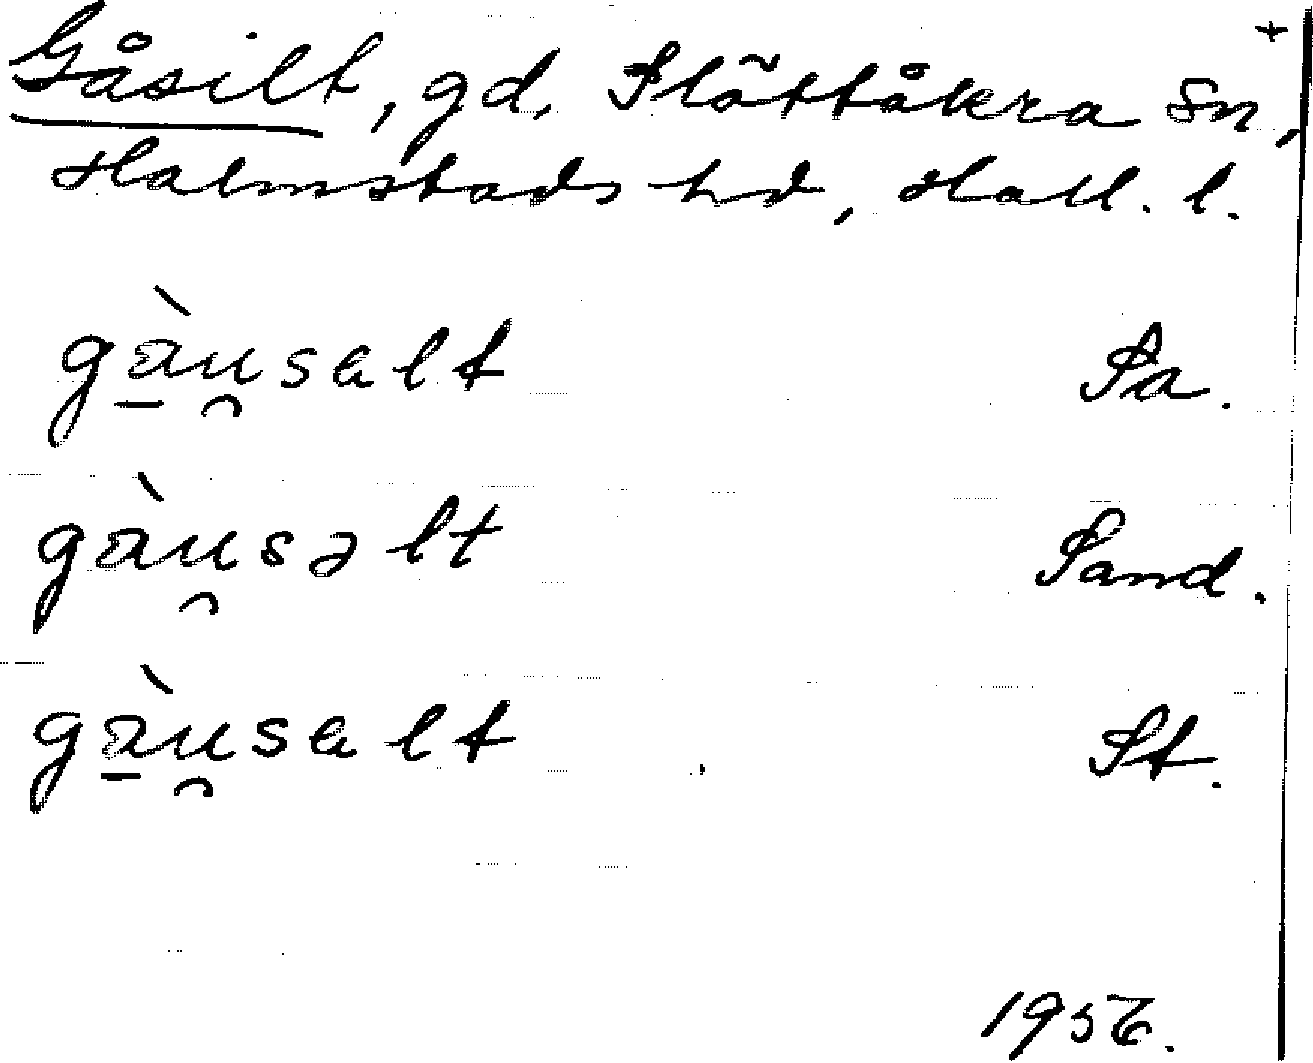 +
Gåsilt, gd, Slättåkra sn,
Halmstads hd, Hall. l.
gà̱u̯salt Sa.
gàu̯səlt Sand.
gà̱u̯salt St.
1956.